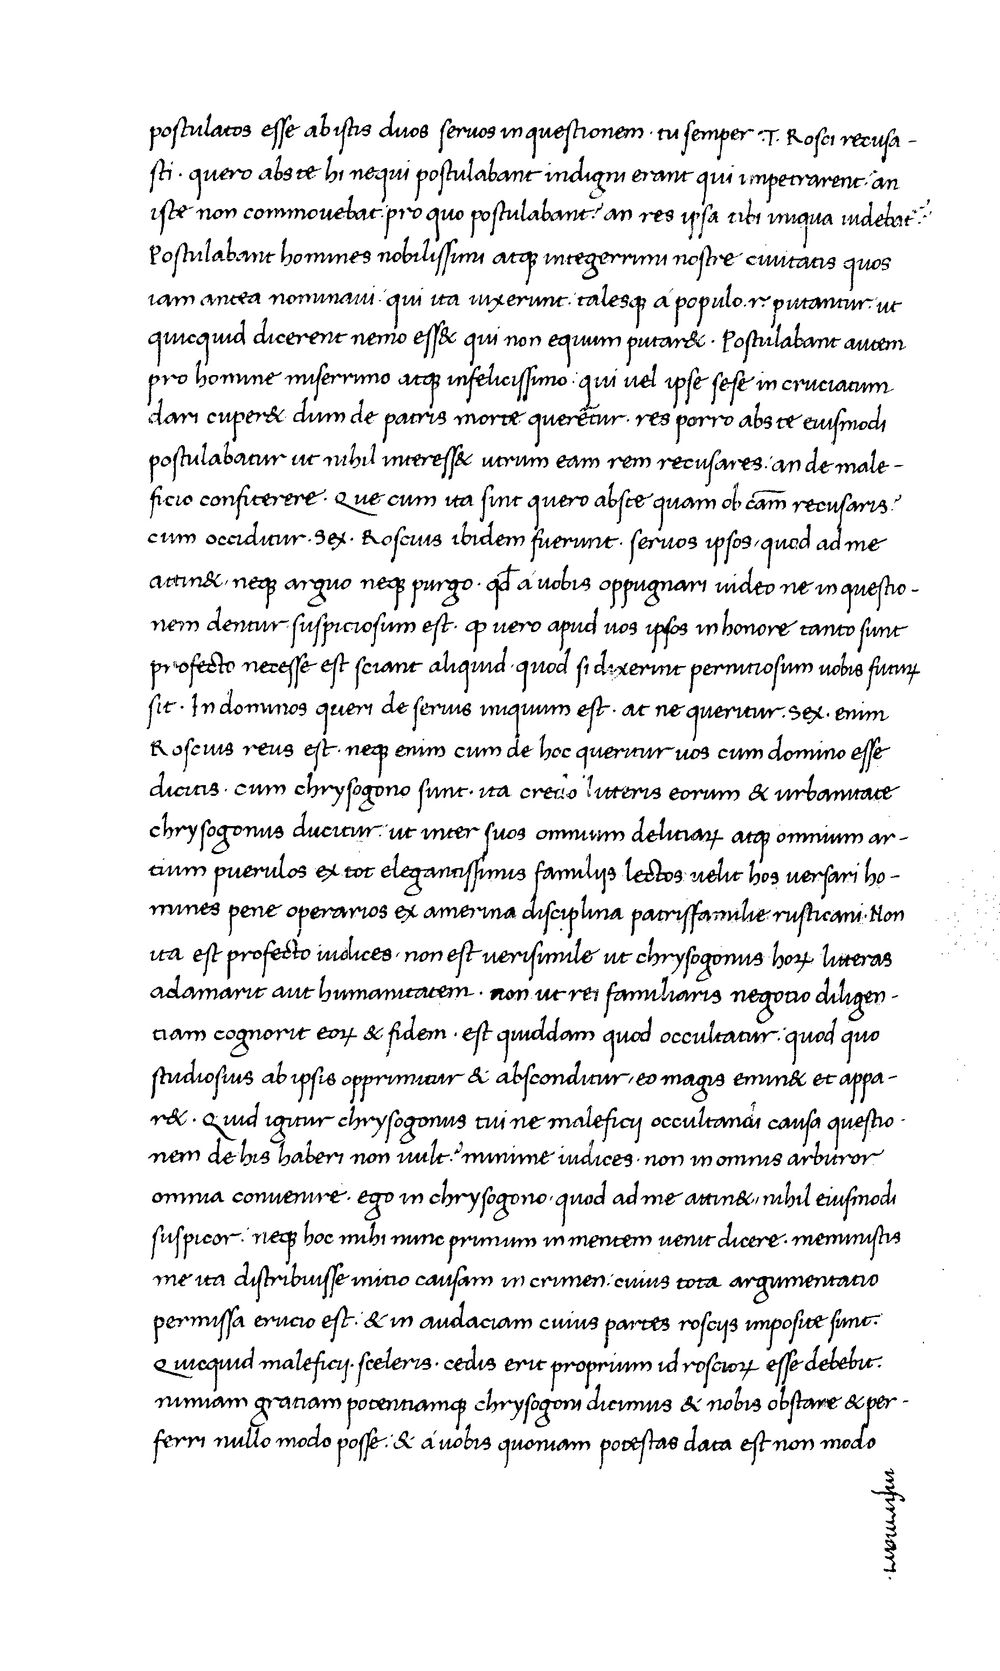 postulatos esse ab istis duos seruos in questionem · tu semper ·T· Rosci recusa-
sti · quero abs te hi ne qui postulabant indigni erant qui impetrarent? an
iste non commouebat pro quo postulabant? an res ipsa tibi iniqua uidebat?
Postulabant homines nobilissimi atq; integerrimi nostre ciuitatis quos
iam antea nominaui qui ita uixerunt talesq; a populo .r. putantur ut
quicquid dicerent nemo ess& qui non equum putar& · Postulabant autem
pro homine miserrimo atq; infelicissimo qui uel ipse sese in cruciatum
dari cuper& dum de patris morte quereretur · res porro abs te eiusmodi
postulabatur ut nihil interess& utrum eam rem recusares an de male-
ficio confiterere · Que cum ita sint quero abste quam ob cām recusaris?
cum occiditur · Sex · Roscius ibidem fuerunt · seruos ipsos, quod ad me
attin&, neq; arguo neq; purgo · qd̄ a uobis oppugnari uideo ne in questio-
nem dentur suspiciosum est · qp uero apud uos ipsos in honore tanto sunt
profecto necesse est sciant aliquid · quod si dixerint perniciosum uobis futuꝝ
sit · In dominos queri de seruis iniquum est · at ne queritur · Sex · enim
Roscius reus est · neq; enim cum de hoc queritur uos cum domino esse
dicitis · cum chrysogono sunt · ita credo litteris eorum & urbanitate
chrysogonus ducitur ut inter suos omnium delitiaꝝ atq; omnium ar-
tium puerulos ex tot elegantissimis familijs lectos uelit hos uersari ho-
mines pene operarios ex amerina disciplina patrisfamilie rusticani · Non
ita est profecto iudices · non est uerisimile ut chrysogonus hoꝝ litteras
adamarit aut humanitatem · non ut rei familiaris negotio diligen-
tiam cognorit eoꝝ & fidem · est quiddam quod occultatur quod quo
studiosius ab ipsis opprimitur & absconditur, eo magis emin& et appa-
r& · Quid igitur chrysogonus tui ne maleficij occultandi causa questio-
nem de his haberi non uult? minime iudices · non in omnis arbitror
omnia conuenire · ego in chrysogono · quod ad me attin&, nihil eiusmodi
suspicor neq; hoc mihi nunc primum in mentem uenit dicere · meministis
me ita distribuisse initio causam in crimen cuius tota argumentatio
permissa erucio est & in audaciam cuius partes roscijs imposite sunt
Quicquid maleficij · sceleris · cedis erit proprium id rosciorꝝ esse debebit
nimiam gratiam potentiamq; chrysogoni dicimus & nobis obstare & per-
ferri nullo modo posse & a uobis quoniam potestas data est non modo
infirmari